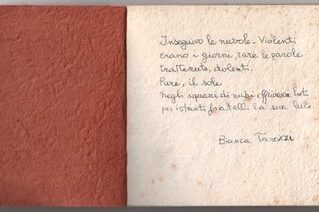 Inseguivo le nuvole. Violenti
erano i giorni, rare le parole
trattenute, dolenti.
Pure, il sole
negli squarci di nubi offriva a noi
per istanti fratelli la sua luce
Bianca